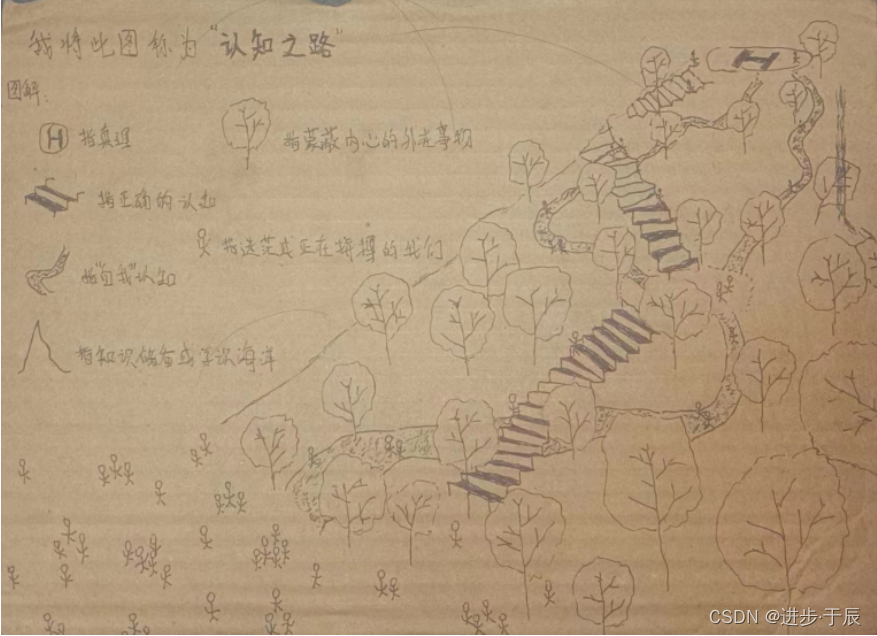 我将此图称为“认知之路”
图解:
H 指真理
指蒙蔽内心的外在事物
指正确的认知
指迷茫或正在拼搏的我们
指“自我”认知
指知识储备或学识海洋
H
CSDN @进步·于辰